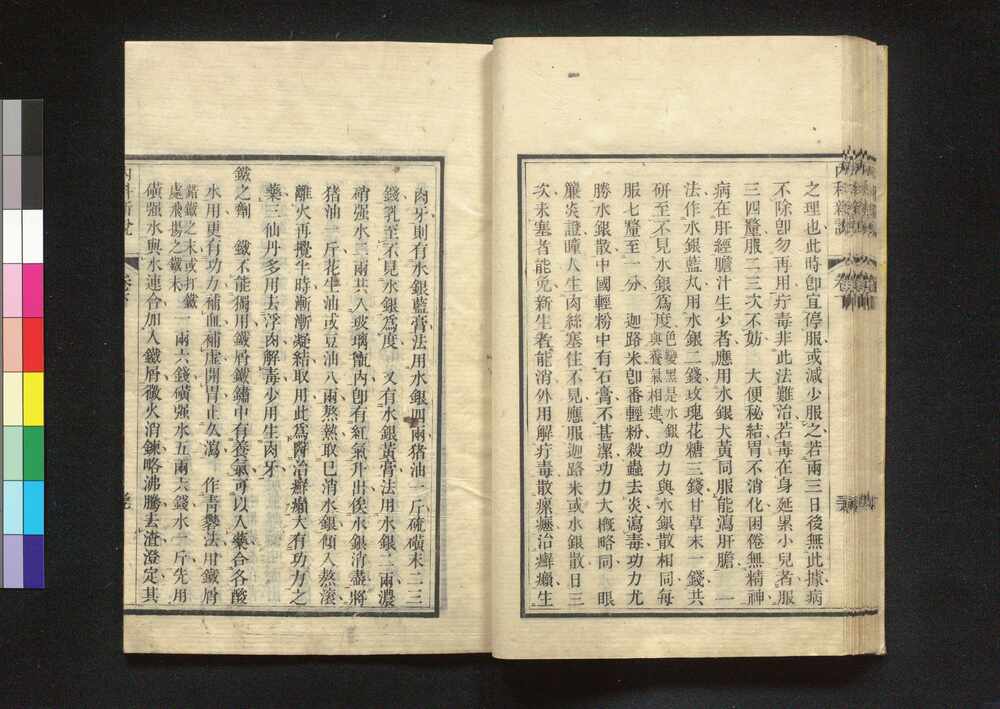 之理也此時卽宜停服或減少服之若兩三日後無此據病
不除卽勿再用疔毒非此法難治若毒在身延累小兒者服
三四釐服二三次不妨 大便秘結胃不消化困倦無精神
病在肝經膽汁生少者應用水銀大黃同服能瀉肝膽 一
法作水銀藍丸用水銀二錢玫瑰花糖三錢甘草末一錢共
研至不見水銀爲度色變黑是水銀與養氣相連功力與水銀散相同每
服七釐至一分 迦路米卽番輕粉殺蟲去炎瀉毒功力尤
勝水銀散中國輕粉中有石膏不甚潔功力大槪略同 眼
簾炎證瞳人生肉絲塞住不見應服迦路米或水銀散日三
次未塞者能免新生者能消外用解疔毒散瘰癧治癬癩生
肉牙則有水銀藍膏法用水銀四兩猪油一斤硫磺末二三
錢乳至不見水銀爲度 又有水銀黃膏法用水銀二兩濃
硝强水三兩共入玻璃甁內卽有紅氣升出俟水銀消盡將
猪油一斤花生油或豆油八兩熬熱取已消水銀傾入熬滾
離火再攪半時漸漸凝結取用此爲醫治癬癩大有功力之
藥三仙丹多用去浮肉解毒少用生肉牙
鐵之劑 鐵不能獨用鐵屑鐵鏽中有養氣可以入藥合各酸
水用更有功力補血補虛開胃止久瀉 作靑礬法用鐵屑
鉛鐵之末或打鐵處飛揚之鐵末一兩六錢磺强水五兩六錢水一斤先用
磺强水與水連合加入鐵屑微火消鍊略沸騰去渣澄定其